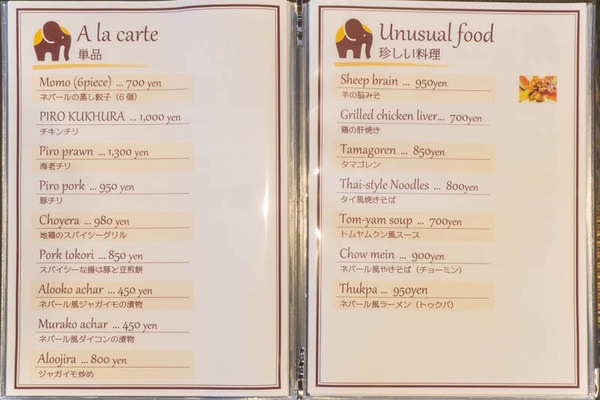 A la carte
単品
Momo (6piece) ... 700 yen
ネパールの蒸し餃子(6個)
PIRO KUKHURA ... 1,000 yen
チキンチリ
Piro prawn ... 1,300 yen
海老チリ
Piro pork ... 950 yen
豚チリ
Choyera ... 980 yen
地鶏のスパイシーグリル
Pork tokori ... 850 yen
スパイシーな揚げ豚と豆煎餅
Alooko achar ... 450 yen
ネパール風ジャガイモの漬物
Murako achar ... 450 yen
ネパール風ダイコンの漬物
Aloojira ... 800 yen
ジャガイモ炒め
Unusual food
珍しい料理
Sheep brain ... 950yen
羊の脳みそ
Grilled chicken liver... 700yen
鶏の肝焼き
Tamagoren ... 850yen
タマゴレン
Thai-style Noodles ... 800yen
タイ風焼きそば
Tom-yam soup ... 700yen
トムヤムクン風スープ
Chow mein ... 900yen
ネパール風やきそば(チョーミン)
Thukpa ... 950yen
ネパール風ラーメン(トゥクパ)